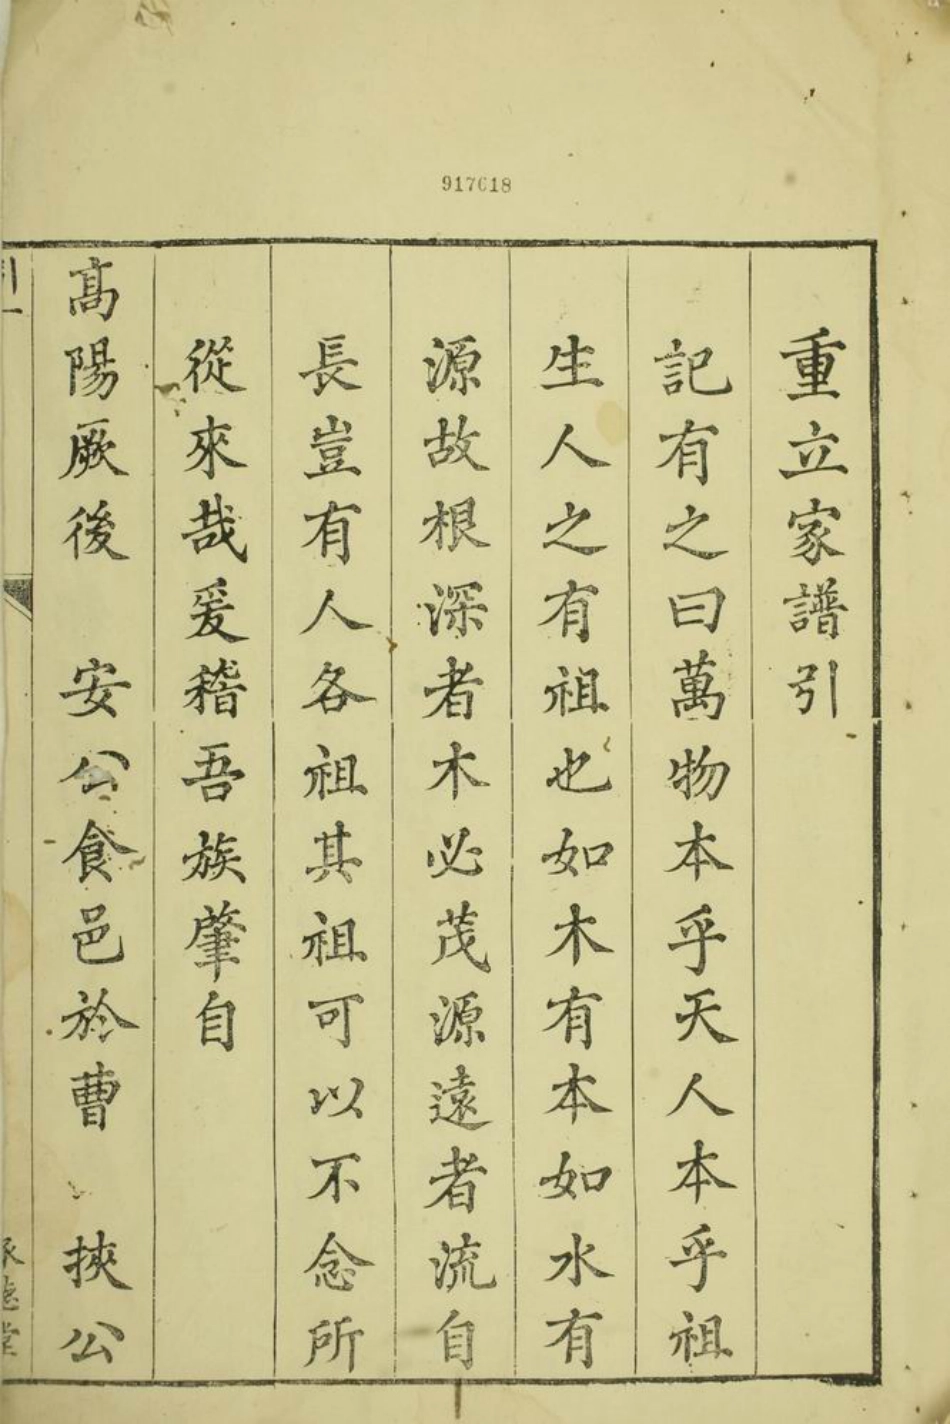 917618
重立家譜引
記有之曰萬物本乎天人本乎祖
生人之有祖也如木有本如水有
源故根深者木必茂源遠者流自
長豈有人各祖其祖可以不念所
從來哉爰稽吾族肇自
高陽厥後　安公食邑於曹　挾公
引一
承德堂